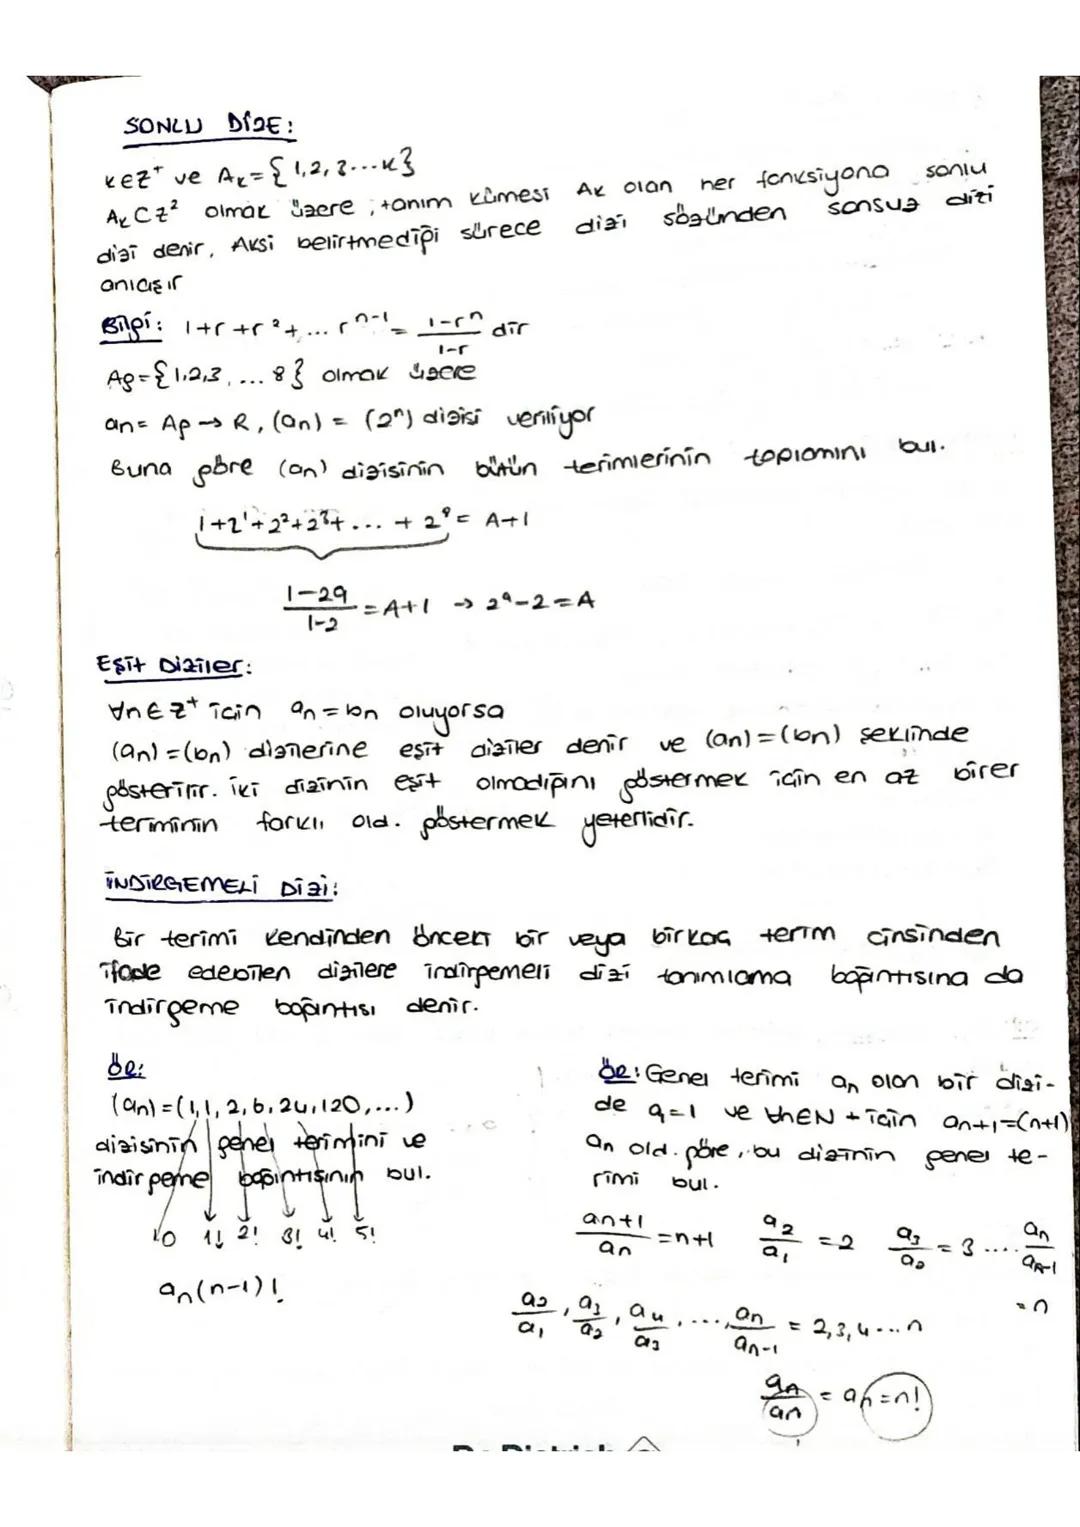 SONLU DİZE:
k∈Z⁺ ve Aₖ={1,2,3...k}
Aₖ⊂Z² olmak üzere ; tanım kümesi Aₖ olan her fonksiyona sonlu
dizi denir. Aksi belirtmediği sürece dizi sözünden sonsuz dizi
anlaşılır
Bilgi: 1+r+r²+...rⁿ⁻¹ = (1-rⁿ)/(1-r) dir
A₈={1,2,3,...8} olmak üzere
an= A₈ → R, (an) = (2ⁿ) dizisi veriliyor
Buna göre (an) dizisinin bütün terimlerinin toplamını bul.
1+2¹+2²+2³+...+2⁸= A+1
(1-29)/(1-2) = A+1 → 2⁹-2=A
Eşit Diziler:
∀n∈Z⁺ için an=bn oluyorsa
(an)=(bn) dizilerine eşit diziler denir ve (an)=(bn) şeklinde
gösterilir. iki dizinin eşit olmadığını göstermek için en az birer
teriminin farklı old. göstermek yeterlidir.
İNDİRGEMELİ DİZİ:
Bir terimi kendinden önceki bir veya birkaç terim cinsinden
ifade edebilen dizilere indirgemeli dizi tanımlama bağıntısına da
indirgeme bağıntısı denir.
ÖR:
(an)=(1,1,2,6,24,120,...)
dizisinin genel terimini ve
indirgeme bağıntısının bul.
1! 2! 3! 4! 5!
an(n-1)!
ÖR: Genel terimi an olan bir dizi-
de a=1 ve ∀n∈N+ için an+1=(n+1)
an old. göre, bu dizinin genel te-
rimi bul.
an+1/an = n+1 a₂/a₁ = 2 a₃/a₂ = 3 .... an/an-1
= n
a₂/a₁, a₃/a₂, a₄/a₃, ..., an/an-1 = 2,3,4...n
an/an = an=n!